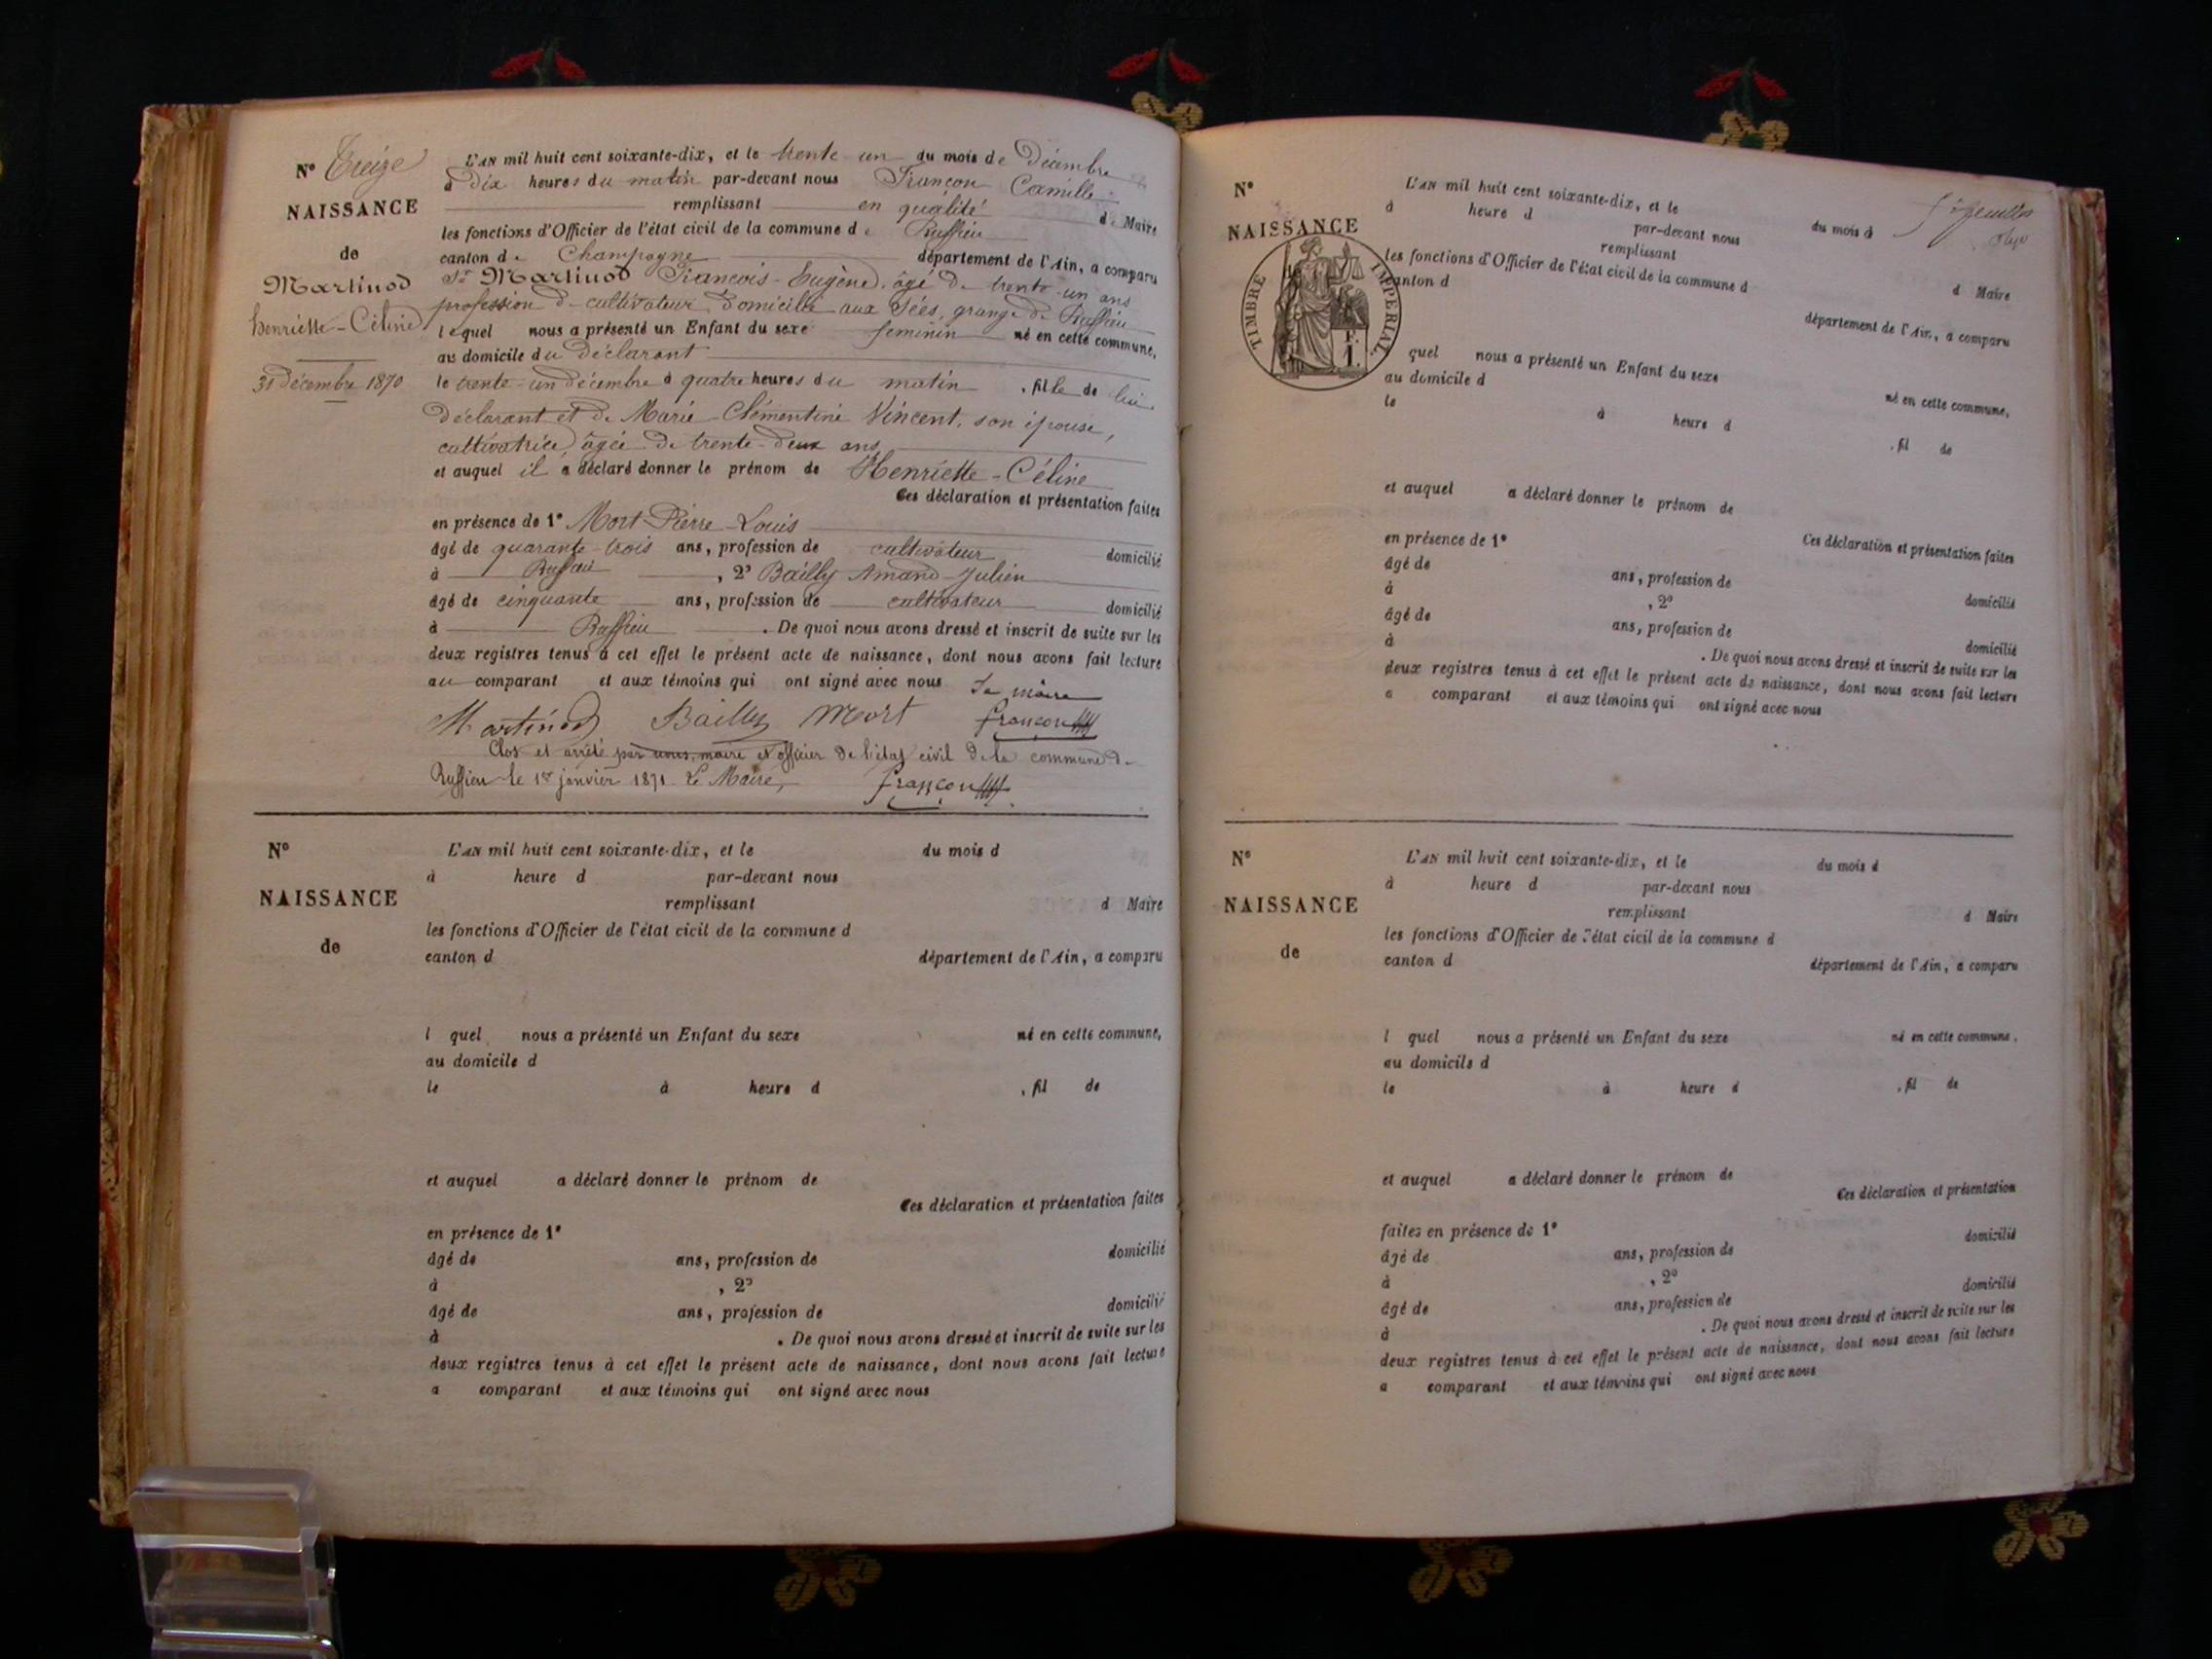 N° Treize
NAISSANCE
de
Martinod
henriette-Céline
31 Décembre 1870
L'AN mil huit cent soixante-dix, et le trente un du mois de Décembre
à Dix heures du matin par-devant nous Françon Camille
remplissant en qualité de Maire
les fonctions d'Officier de l'état civil de la commune de Ruffieu
canton de Champagne département de l'Ain, a comparu
Sr Martinod François-Eugène, âgé de trente-un ans
profession de cultivateur, domicilié aux Sées, grange de Ruffieu
lequel nous a présenté un Enfant du sexe feminin né en cette commune,
au domicile du Déclarant
le trente-un décembre à quatre heures du matin , fille de lui
Déclarant et de Marie-Clémentine Vincent, son épouse,
cultivatrice, âgée de trente-deux ans
et auquel il a déclaré donner le prénom de Henriette-Céline
Ces déclaration et présentation faites
en présence de 1° Mort Pierre-Louis
âgé de quarante-trois ans, profession de cultivateur domicilié
à Ruffieu , 2° Bailly Amand-Julien
âgé de cinquante ans, profession de cultivateur domicilié
à Ruffieu . De quoi nous avons dressé et inscrit de suite sur les
deux registres tenus à cet effet le présent acte de naissance, dont nous avons fait lecture
au comparant et aux témoins qui ont signé avec nous
Le maire
Martinod Bailly Mort françon
Clos et arrêté par nous, maire et officier de l'état civil de la commune de
Ruffieu le 1er janvier 1871. Le Maire,
françon
N°
NAISSANCE
de
L'AN mil huit cent soixante-dix, et le du mois d
à heure d par-devant nous
remplissant d Maire
les fonctions d'Officier de l'état civil de la commune d
canton d département de l'Ain, a comparu
l quel nous a présenté un Enfant du sexe né en cette commune,
au domicile d
le à heure d , fil de
et auquel a déclaré donner le prénom de
Ces déclaration et présentation faites
en présence de 1°
âgé de ans, profession de domicilié
à , 2°
âgé de ans, profession de domicilié
à . De quoi nous avons dressé et inscrit de suite sur les
deux registres tenus à cet effet le présent acte de naissance, dont nous avons fait lecture
a comparant et aux témoins qui ont signé avec nous
N°
NAISSANCE
TIMBRE IMPERIAL
F.
1.
L'AN mil huit cent soixante-dix, et le du mois d
à heure d par-devant nous
remplissant d Maire
les fonctions d'Officier de l'état civil de la commune d
canton d département de l'Ain, a comparu
quel nous a présenté un Enfant du sexe né en cette commune,
au domicile d
le à heure d , fil de
et auquel a déclaré donner le prénom de
Ces déclaration et présentation faites
en présence de 1°
âgé de ans, profession de domicilié
à , 2°
âgé de ans, profession de domicilié
à . De quoi nous avons dressé et inscrit de suite sur les
deux registres tenus à cet effet le présent acte de naissance, dont nous avons fait lecture
a comparant et aux témoins qui ont signé avec nous
N°
NAISSANCE
de
L'AN mil huit cent soixante-dix, et le du mois d
à heure d par-devant nous
remplissant d Maire
les fonctions d'Officier de l'état civil de la commune d
canton d département de l'Ain, a comparu
l quel nous a présenté un Enfant du sexe né en cette commune,
au domicile d
le à heure d , fil de
et auquel a déclaré donner le prénom de
Ces déclaration et présentation
faites en présence de 1°
âgé de ans, profession de domicilié
à , 2°
âgé de ans, profession de domicilié
à . De quoi nous avons dressé et inscrit de suite sur les
deux registres tenus à cet effet le présent acte de naissance, dont nous avons fait lecture
a comparant et aux témoins qui ont signé avec nous